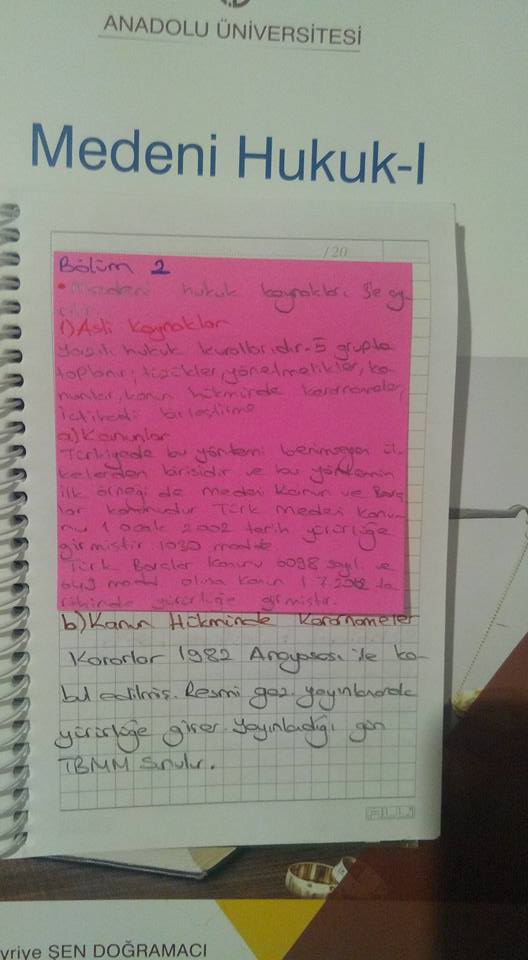 ANADOLU ÜNİVERSİTESİ
Medeni Hukuk-I
/20
Bölüm 2
• Medeni hukuk kaynakları 3'e ay-
1) Asli Kaynaklar
Yazılı hukuk kurallarıdır. 5 grupta
toplanır; tüzükler, yönetmelikler, ka-
nunlar, kanun hükmünde kararnameler,
içtihadı birleştirme
a) Kanunlar
Türkiyede bu yöntemi benimseyen ül-
kelerden birisidir ve bu yöntemin
ilk örneği de medeni kanun ve Borç-
lar kanunudur Türk medeni kanu-
nu 1 ocak 2002 tarih yürürlüğe
girmiştir 1030 madde
Türk Borçlar Kanunu 6098 sayılı ve
649 madde olusa kanun 1 7 2012 ta-
rihinde yürürlüğe girmiştir.
b) Kanun Hükminde Kararnameler
Kararlar 1982 Anayasası ile ka-
bul edilmiş. Resmi gaz. yayınlanarak
yürürlüğe girer. Yayınladığı gün
TBMM sunulur.
vriye ŞEN DOĞRAMACI